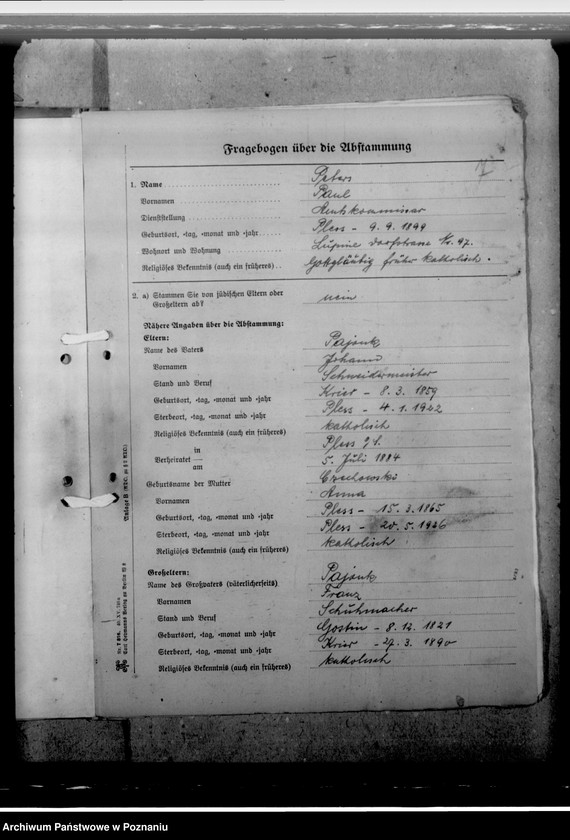 Fragebogen über die Abstammung
1. Name Peters
Vornamen Paul
Dienststellung Amtskommissar
Geburtsort, -tag, -monat und -jahr Pless - 9. 9. 1899
Wohnort und Wohnung Lupine Dorfstrasse Nr. 47.
Religiöses Bekenntnis (auch ein früheres) Gottgläubig früher katholisch.
2. a) Stammen Sie von jüdischen Eltern oder
Großeltern ab? nein
Nähere Angaben über die Abstammung:
Eltern:
Name des Vaters Pajonk
Vornamen Johann
Stand und Beruf Schneidermeister
Geburtsort, -tag, -monat und -jahr Krier - 8. 3. 1859
Sterbeort, -tag, -monat und -jahr Pless - 4. 1. 1922
Religiöses Bekenntnis (auch ein früheres) katholisch
Verheiratet in Pless
am 5. Juli 1884
Geburtsname der Mutter Czechowski
Vornamen Anna
Geburtsort, -tag, -monat und -jahr Pless - 15. 3. 1865
Sterbeort, -tag, -monat und -jahr Pless - 20. 5. 1926
Religiöses Bekenntnis (auch ein früheres) katholisch
Großeltern:
Name des Großvaters (väterlicherseits) Pajonk
Vornamen Franz
Stand und Beruf Schuhmacher
Geburtsort, -tag, -monat und -jahr Gostin - 8. 12. 1821
Sterbeort, -tag, -monat und -jahr Krier - 27. 3. 1890
Religiöses Bekenntnis (auch ein früheres) katholisch
Archiwum Państwowe w Poznaniu